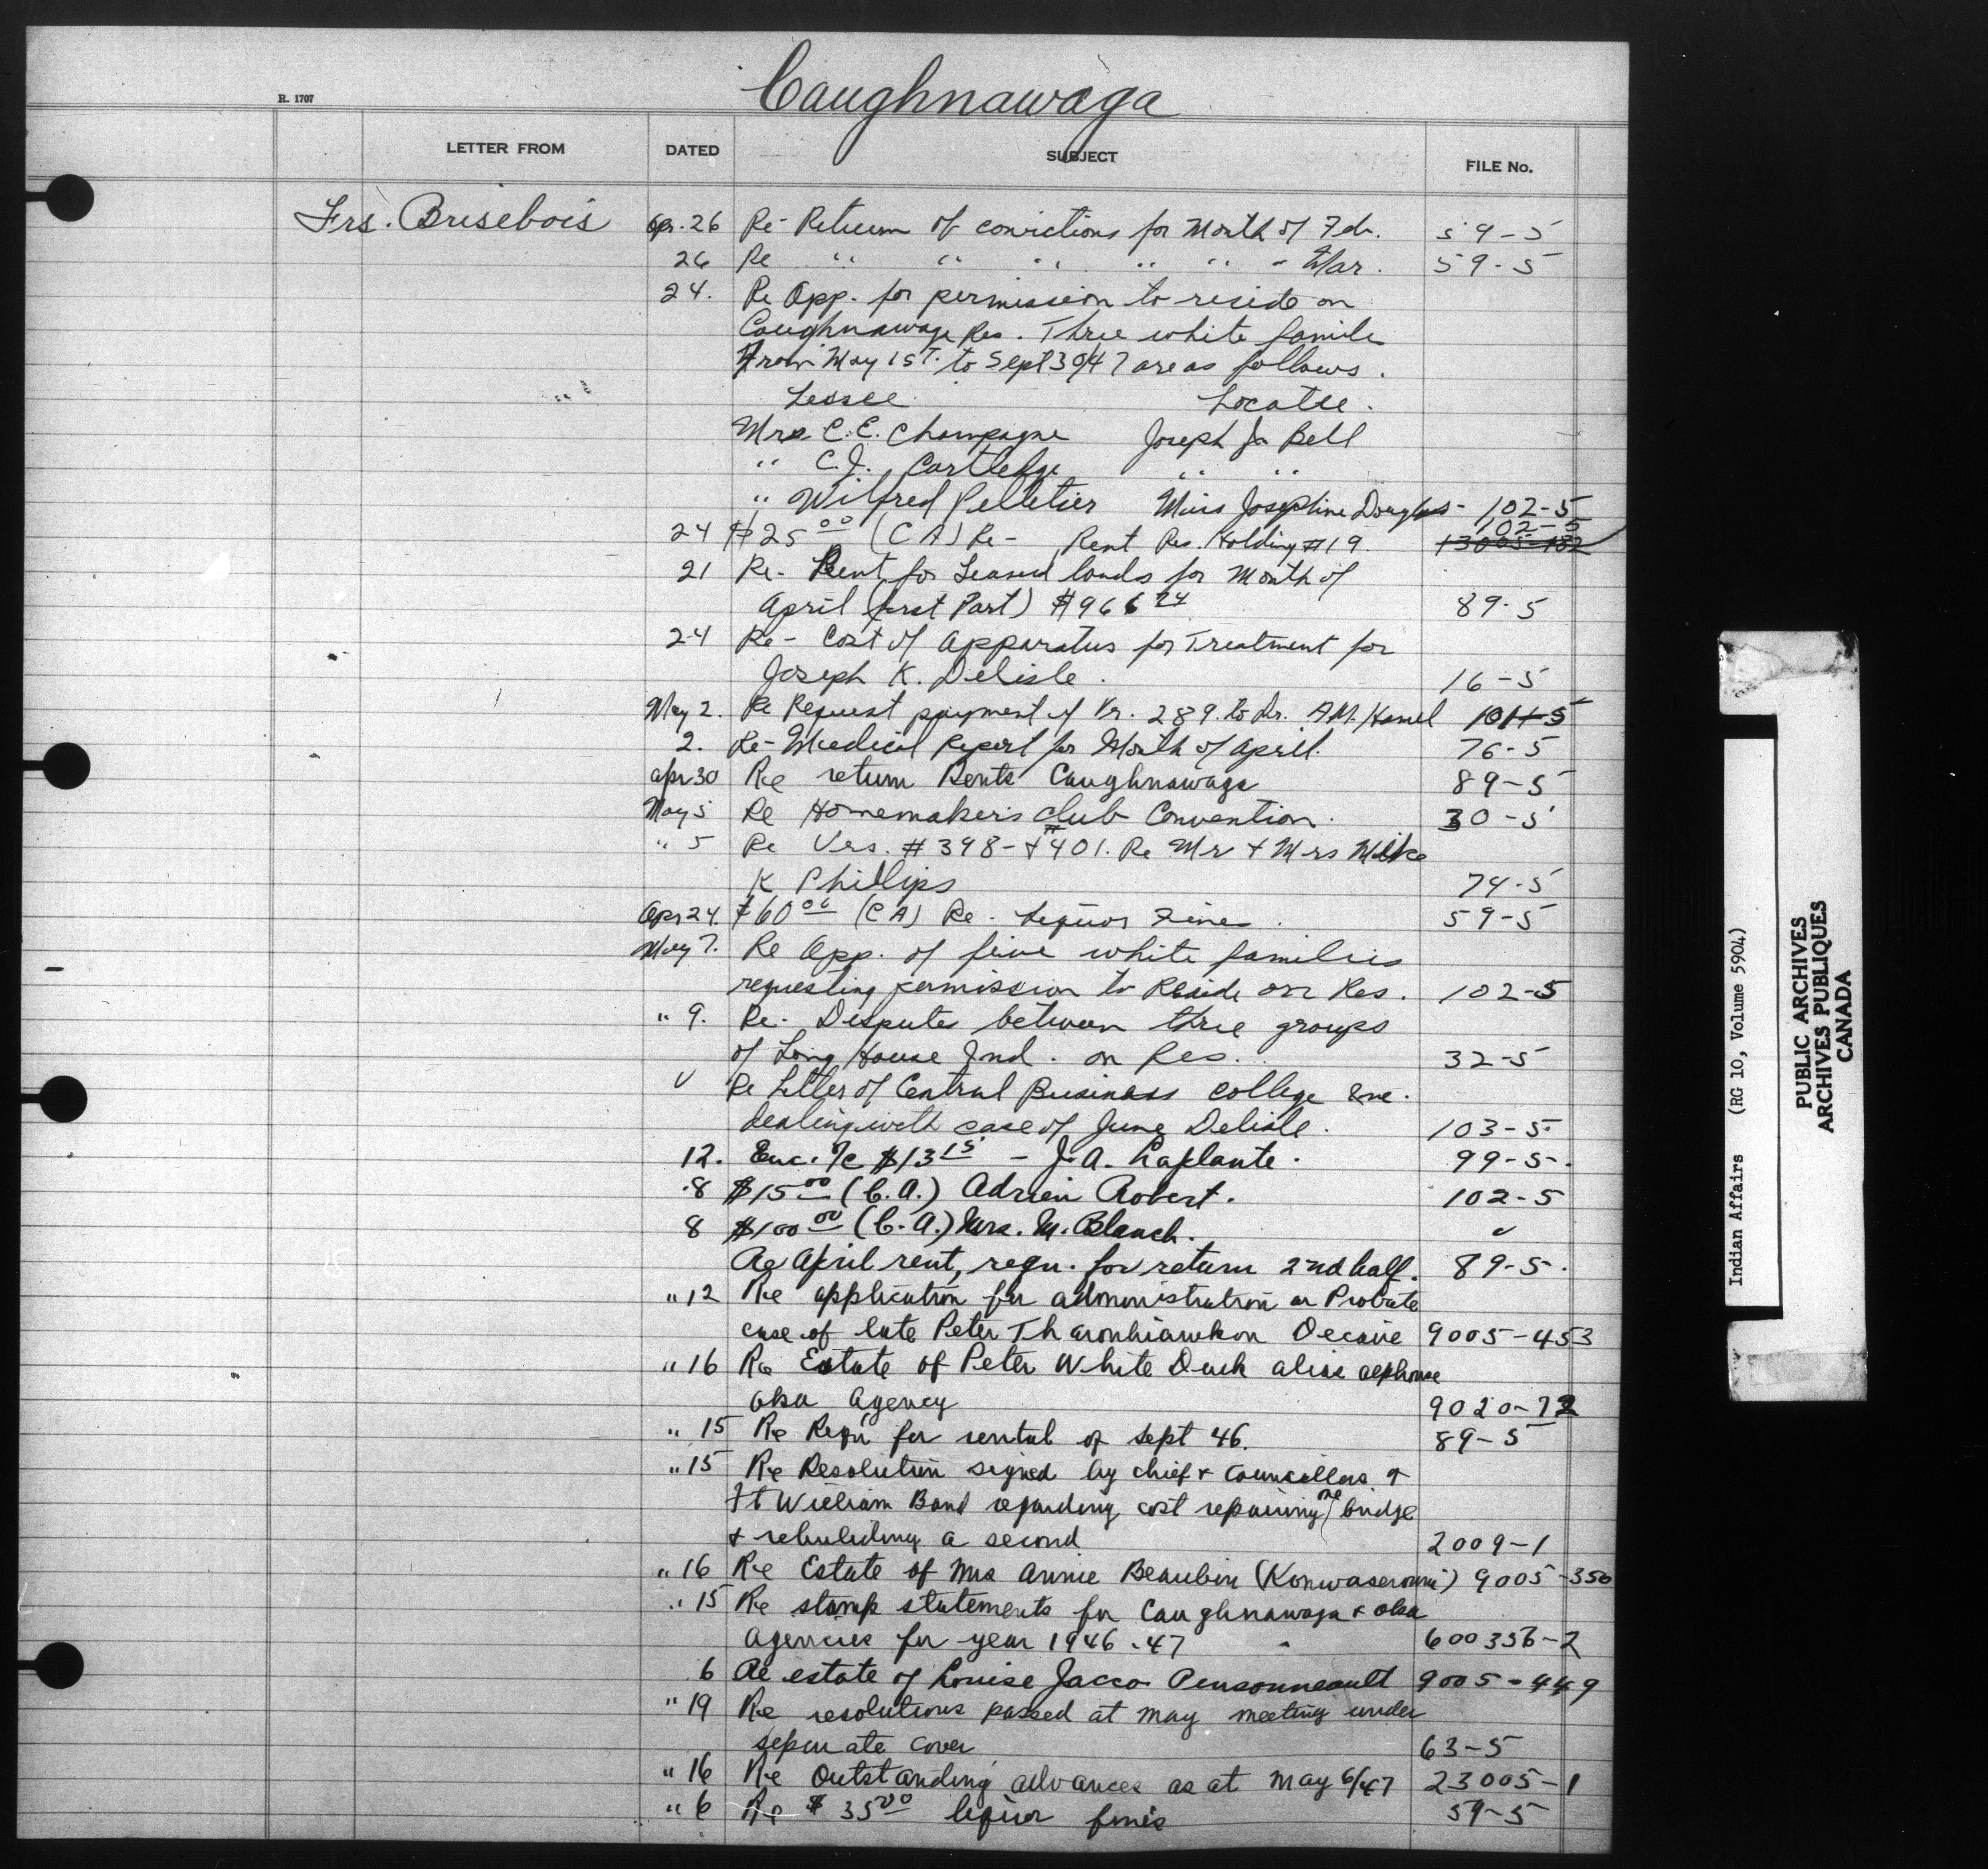 Caughnawaga
R. 1707
LETTER FROM DATED SUBJECT FILE No.
Frs. Brisebois Apr. 26 Re- Return of convictions for Month of Feb. 59-5
26 Re " " " " " " Mar. 59-5
24. Re App. for permission to reside on
Caughnawaga Res. Three white famile
From May 1st. to Sept 30/47 are as follows.
Lessee Locatee.
Mrs C. E. Champagne Joseph Jr Bell
" C. J. Cartledge " "
" Wilfred Pelletier Miss Josephine Douglas - 102-5
102-5
24 $25 00 (C A) Re- Rent Res. Holding #19. 13005-132
21 Re- Rent for Leased lands for Month of
April (first Part) $966 24 89-5
24 Re- Cost of apparatus for Treatment for
Joseph K. Delisle. 16-5
May 2. Re Request payment of Vr. 289. to Dr. A.M. Hamel 101-5
2. Re- Medical Report for Month of April. 76-5
Apr 30 Re return Rents Caughnawaga 89-5
May 5 Re Homemakers club Convention. 30-5
" 5 Re Vrs. # 398- + #401. Re Mr + Mrs Mike
K Phillips 74-5
Apr 24. $60 00 (C A) Re. Liquor Fines. 59-5
May 7. Re App. of five white families
requesting permission to Reside on Res. 102-5
" 9. Re. Dispute between three groups
of Long House Ind. on Res. 32-5
Re Letter of Central Business college
dealing with case of June Delisle. 103-5.
12. Enc. a/c $13 15 - J. A. Laplante. 99-5-.
8 $15 00 (C. A.) Adrien Robert. 102-5
8 $100 00 (C. A.) Mrs. M. Blanch.
Re April rent, requ. for return 2nd half. 89-5-.
" 12 Re application for administration or Probate
case of late Peter Tharonhiawkon Decaire 9005-453
" 16 Re Estate of Peter White Duck alias
oka Agency 9020-72
" 15 Re Requ for rental of Sept 46. 89-5
" 15 Re Resolution signed by chief + Councillors of
Ft William Band regarding cost repairing one bridge
+ rebuilding a second 2009-1
" 16 Re Estate of Mrs Annie Beaubin 9005-350
" 15 Re stamp statements for Caughnawaga + oka
agencies for year 1946-47 600356-2
6 Re estate of Louise Jacco Pensonneault 9005-449
" 19 Re resolutions passed at May meeting under
separate cover 63-5
" 16 Re Outstanding advances as at May 6/47 23005-1
" 6 Re $35 00 liquor fines 59-5
Indian Affairs (RG 10, Volume 5904)
PUBLIC ARCHIVES
ARCHIVES PUBLIQUES
CANADA